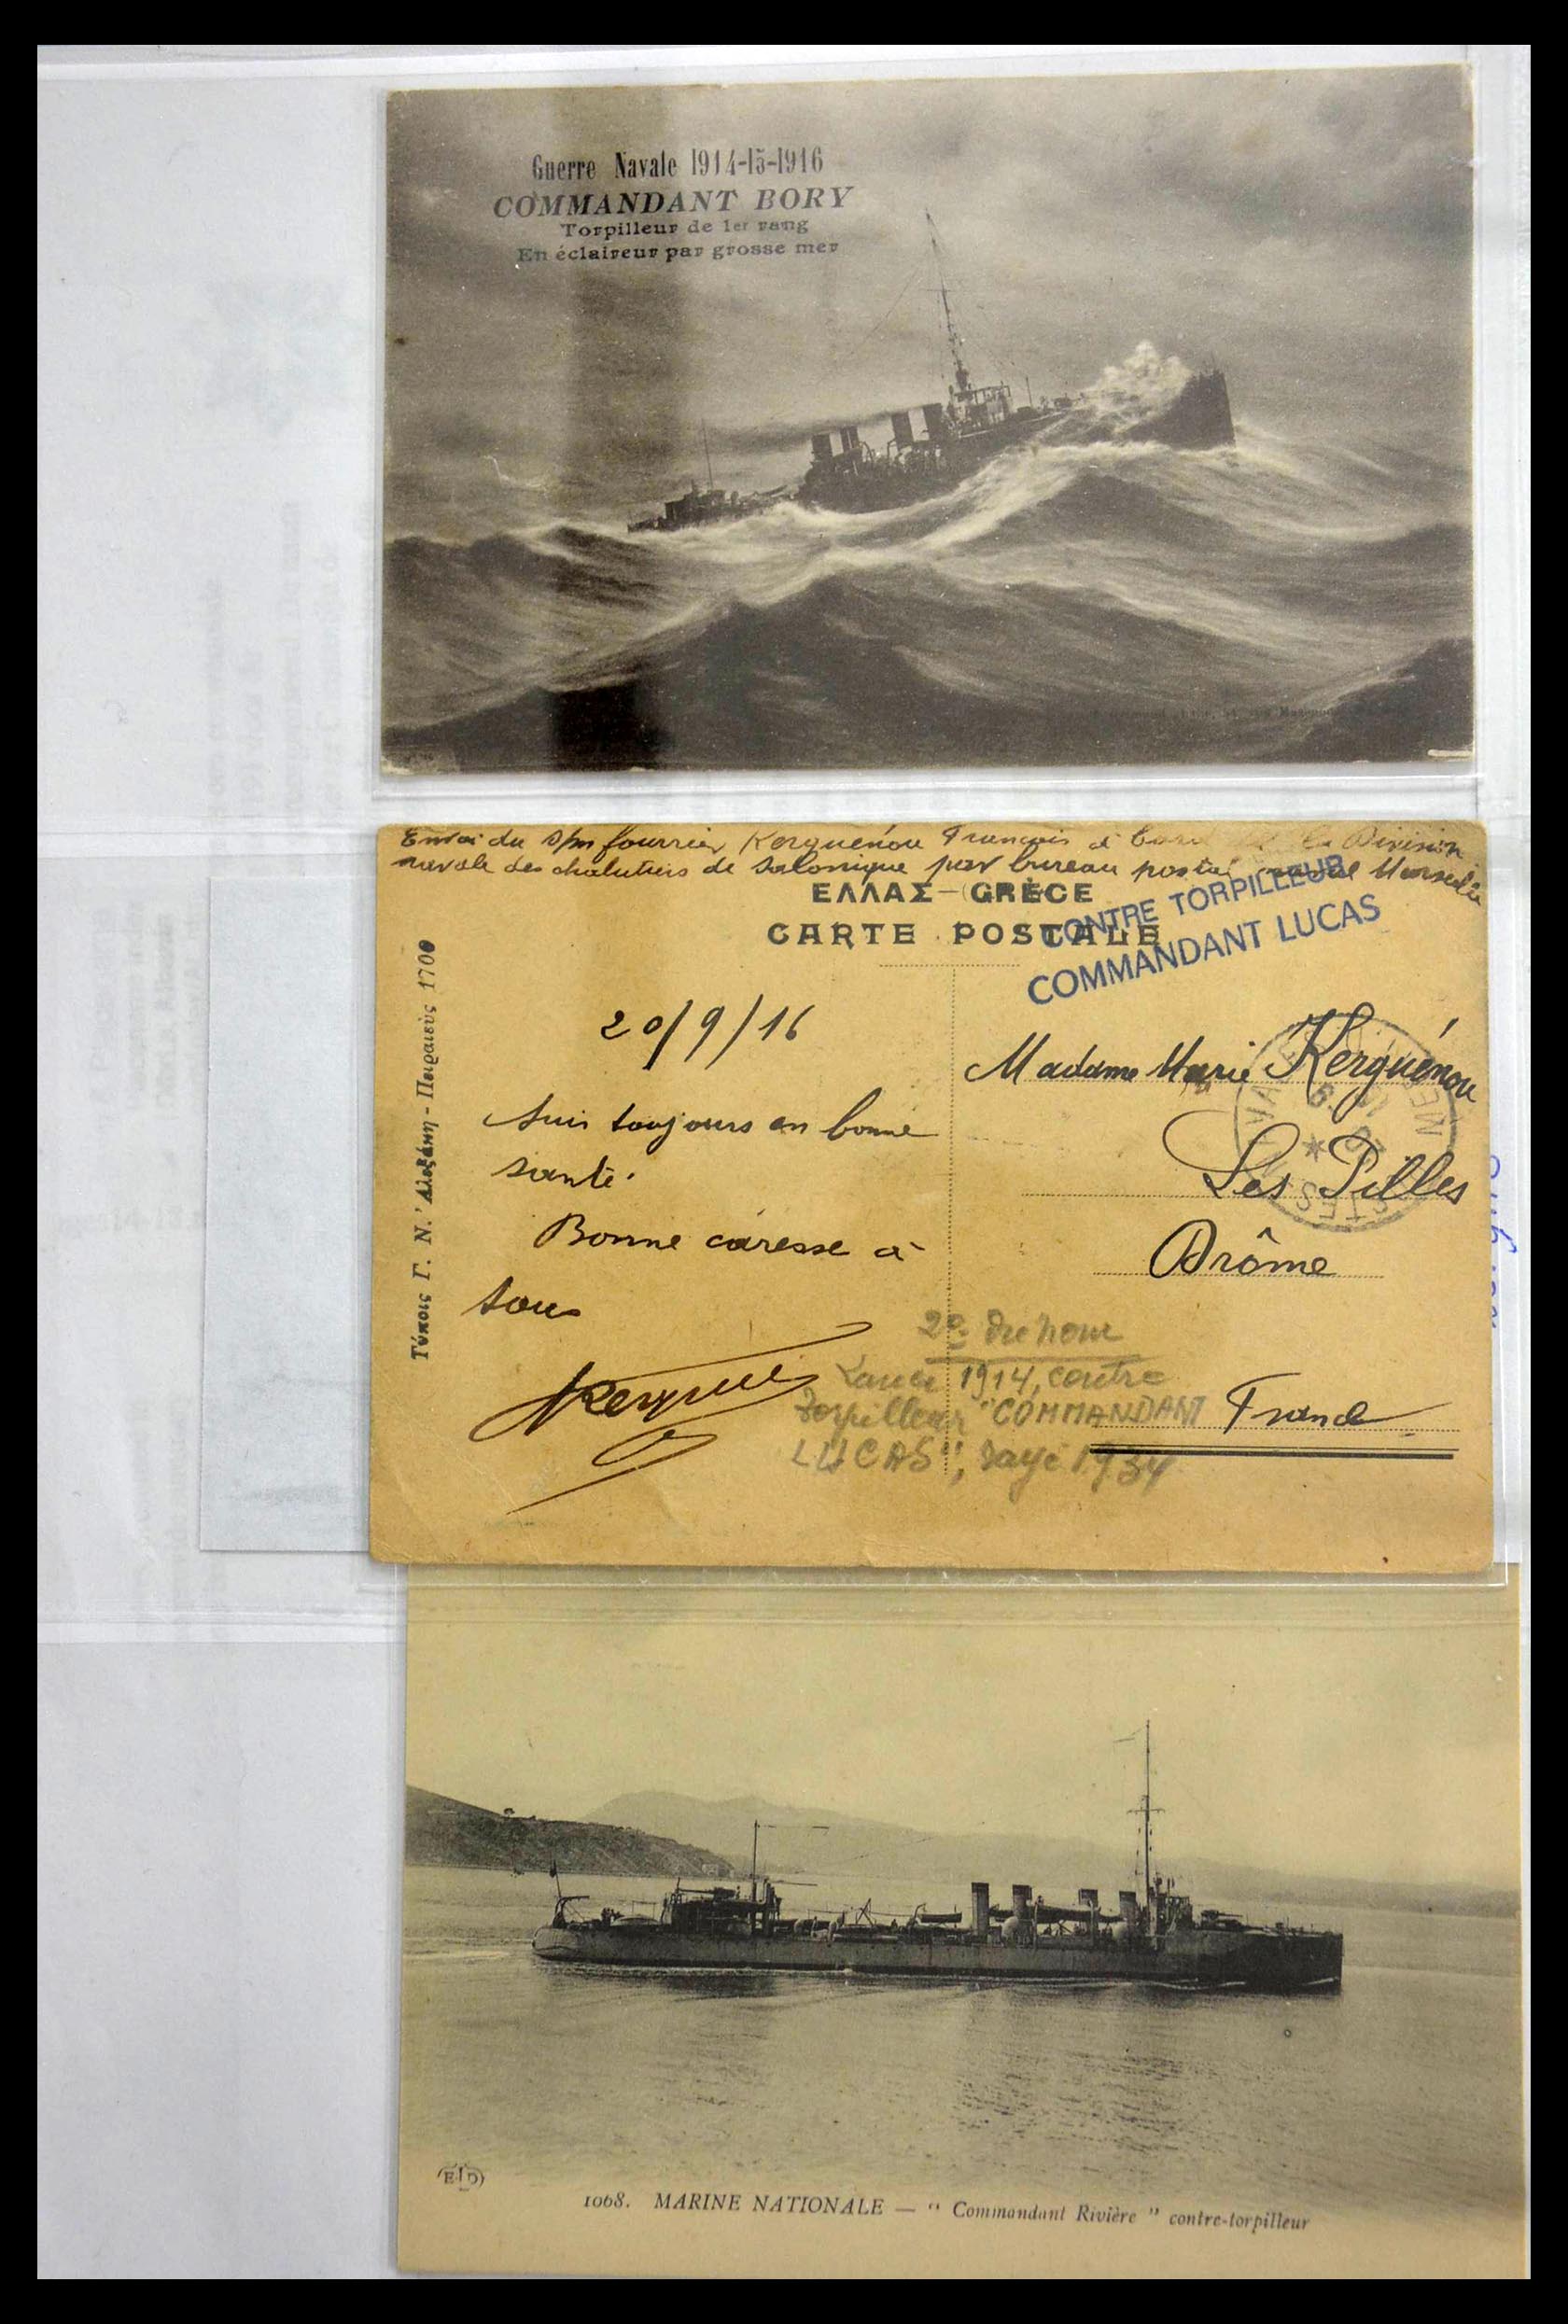 Guerre Navale 1914-15-1916
COMMANDANT BORY
Torpilleur de 1er rang
En éclaireur par grosse mer
Envoi du s/m fourrier Kerguénou François à bord la Division
navale des chalutiers de Salonique par bureau postal naval Marseille
ΕΛΛΑΣ-GRÈCE
CARTE POSTALE
CONTRE TORPILLEUR
COMMANDANT LUCAS
Τύποις Γ. Ν. Ἀλεξάκη - Πειραιεὺς 1700
20/9/16
Suis toujours en bonne
santé.
Bonne caresse à
tous
Madame Marie Kerguénou
Les Pilles
Drôme
France
2e du nom
Lancé 1914, contre
torpilleur "COMMANDANT
LUCAS", rayé 1934
ELD
1068. MARINE NATIONALE — " Commandant Rivière " contre-torpilleur